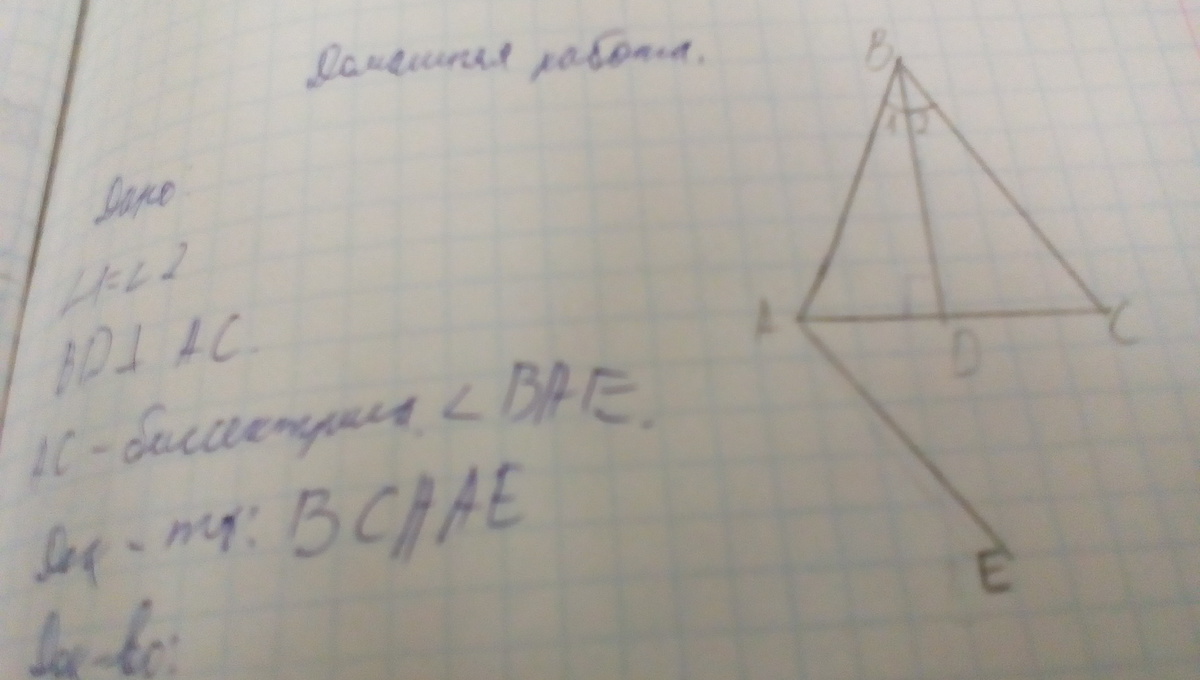 Домашняя работа.
Дано
∠1=∠2
BD⊥ AC.
AC-биссектриса ∠BAE.
Док-ть: BC∥AE
Док-во:
B
1 2
A
D
C
E